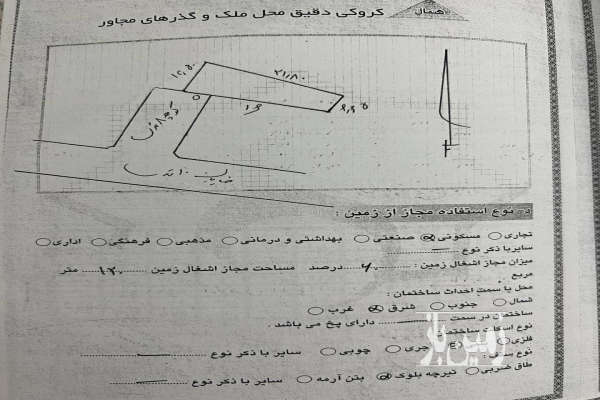 شمال
کروکی دقیق محل ملک و گذرهای مجاور
۱۲,۵۰
۲۱,۸۰
۱۶
خیابان ۱۰
د- نوع استفاده مجاز از زمین :
تجاری مسکونی صنعتی بهداشتی و درمانی مذهبی فرهنگی اداری
سایر با ذکر نوع
میزان مجاز اشغال زمین : درصد مساحت مجاز اشغال زمین ۱۲۰ متر
مربع
محل یا سمت احداث ساختمان :
شمال جنوب شرق غرب
ساختمان در سمت دارای پخ می باشد .
نوع اسکلت ساختمان
فلزی آجری چوبی سایر با ذکر نوع
نوع سقف :
طاق ضربی تیرچه بلوک بتن آرمه سایر با ذکر نوع
زمین باز